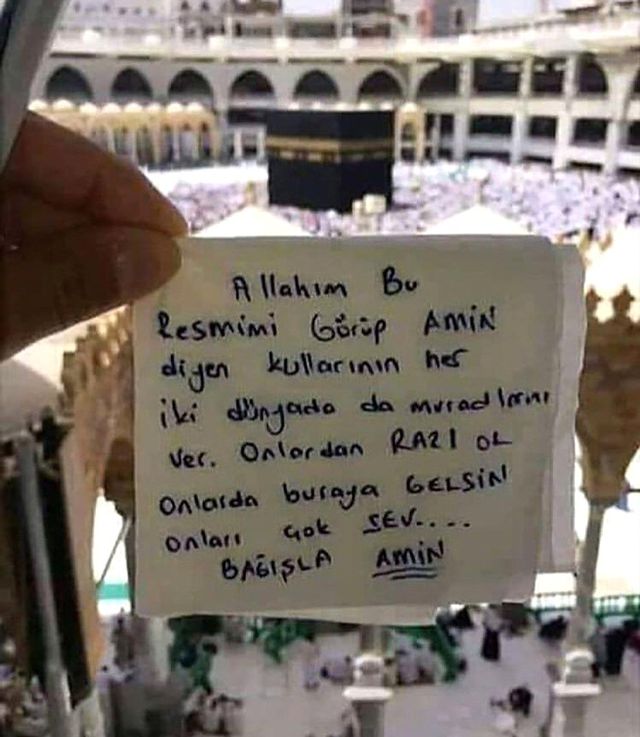 Allahım Bu
Resmimi Görüp AMİN
diyen kullarının her
iki dünyada da muradlarını
ver. Onlardan RAZI OL
Onlarda buraya GELSİN
onları çok SEV....
BAĞIŞLA AMİN